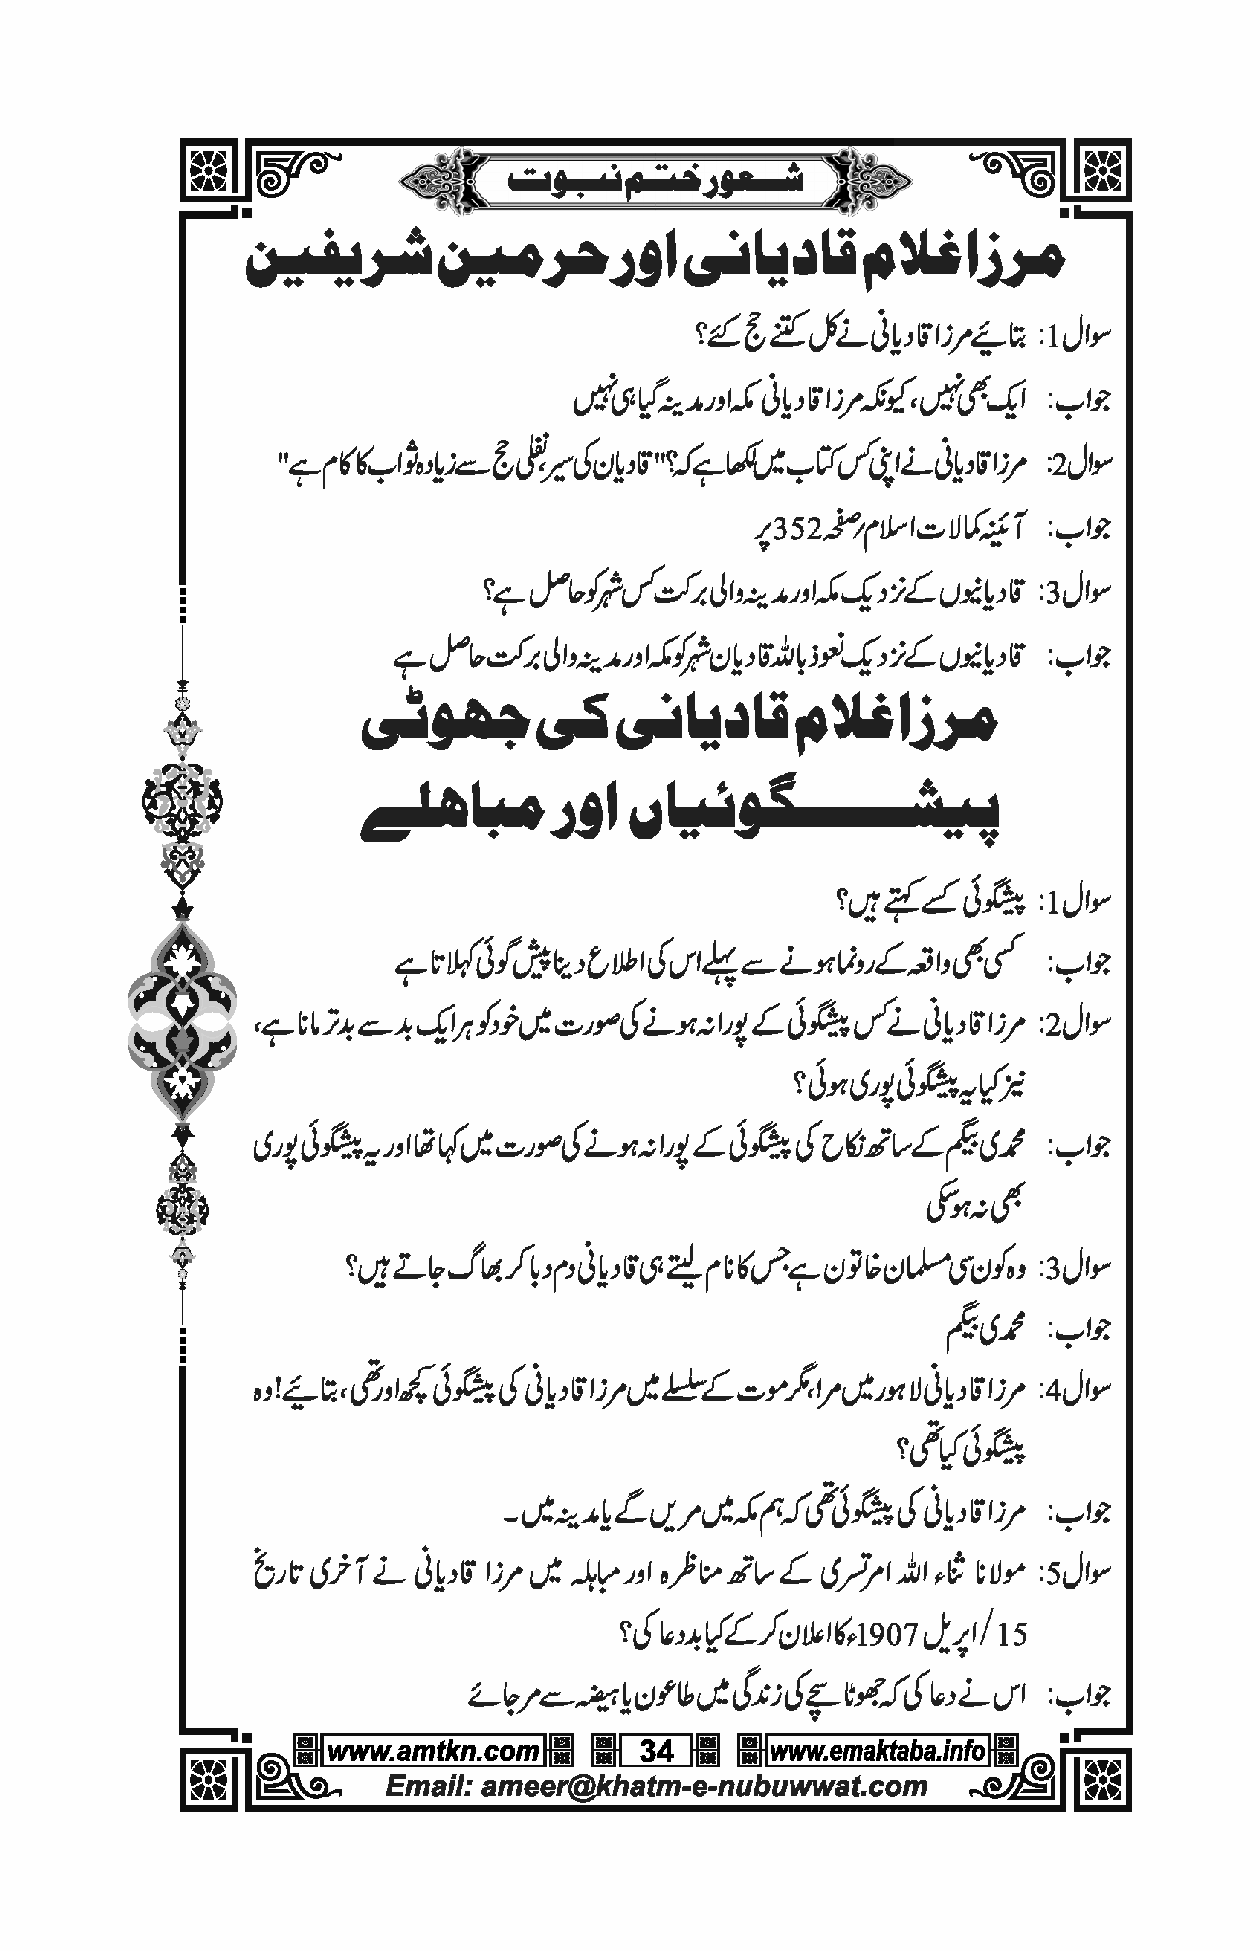 شعور ختم نبوت
مرزا غلام قادیانی اور حرمین شریفین
سوال1: بتائیے مرزا قادیانی نے کل کتنے حج کئے؟
جواب: ایک بھی نہیں، کیونکہ مرزا قادیانی مکہ اور مدینہ گیا ہی نہیں
سوال2: مرزا قادیانی نے اپنی کس کتاب میں لکھا ہے کہ؟ "قادیان کی سیر، نفلی حج سے زیادہ ثواب کا کام ہے"
جواب: آئینہ کمالات اسلام/صفحہ 352 پر
سوال3: قادیانیوں کے نزدیک مکہ اور مدینہ والی برکت کس شہر کو حاصل ہے؟
جواب: قادیانیوں کے نزدیک نعوذ باللہ قادیان شہر کو مکہ اور مدینہ والی برکت حاصل ہے
مرزا غلام قادیانی کی جھوٹی
پیشگوئیاں اور مباھلے
سوال1: پیشگوئی کسے کہتے ہیں؟
جواب: کسی بھی واقعہ کے رونما ہونے سے پہلے اس کی اطلاع دینا پیش گوئی کہلاتا ہے
سوال2: مرزا قادیانی نے کس پیشگوئی کے پورا نہ ہونے کی صورت میں خود کو ہر ایک بد سے بدتر مانا ہے،
نیز کیا یہ پیشگوئی پوری ہوئی؟
جواب: محمدی بیگم کے ساتھ نکاح کی پیشگوئی کے پورا نہ ہونے کی صورت میں کہا تھا اور یہ پیشگوئی پوری
بھی نہ ہو سکی
سوال3: وہ کون سی مسلمان خاتون ہے جس کا نام لیتے ہی قادیانی دم دبا کر بھاگ جاتے ہیں؟
جواب: محمدی بیگم
سوال4: مرزا قادیانی لاہور میں مرا، مگر موت کے سلسلے میں مرزا قادیانی کی پیشگوئی کچھ اور تھی، بتائیے! وہ
پیشگوئی کیا تھی؟
جواب: مرزا قادیانی کی پیشگوئی تھی کہ ہم مکہ میں مریں گے یا مدینہ میں۔
سوال5: مولانا ثناء اللہ امرتسری کے ساتھ مناظرہ اور مباہلہ میں مرزا قادیانی نے آخری تاریخ
15/اپریل 1907ء کا اعلان کر کے کیا بددعا کی؟
جواب: اس نے دعا کی کہ جھوٹا سچے کی زندگی میں طاعون یا ہیضہ سے مر جائے
www.amtkn.com 34 www.emaktaba.info
Email: ameer@khatm-e-nubuwwat.com